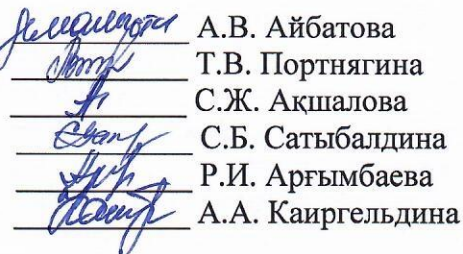 А.В. Айбатова
Т.В. Портнягина
С.Ж. Ақшалова
С.Б. Сатыбалдина
Р.И. Арғымбаева
А.А. Каиргельдина